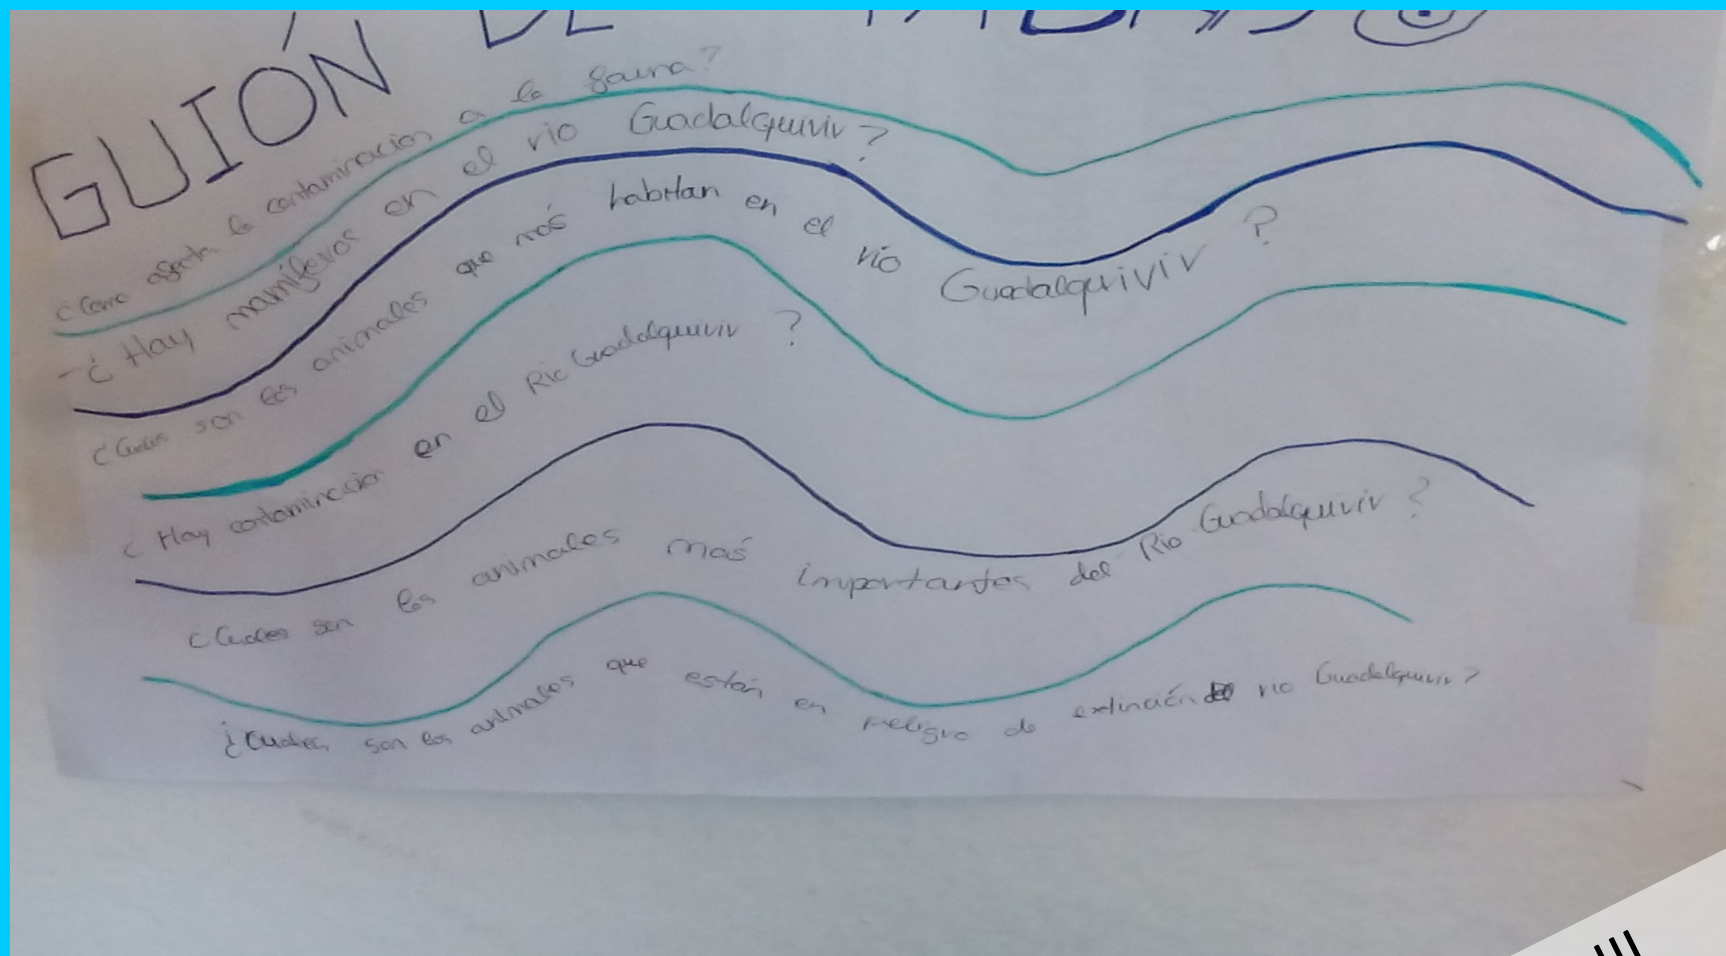 GUIÓN DE
¿Como afecta la contaminación a la fauna?
-¿Hay mamíferos en el río Guadalquivir?
¿Cuales son los animales que más habitan en el río Guadalquivir?
¿Hay contaminación en el Río Guadalquivir?
¿Cuales son los animales más importantes del Río Guadalquivir?
¿Cuales son los animales que están en peligro de extinción río Guadalquivir?